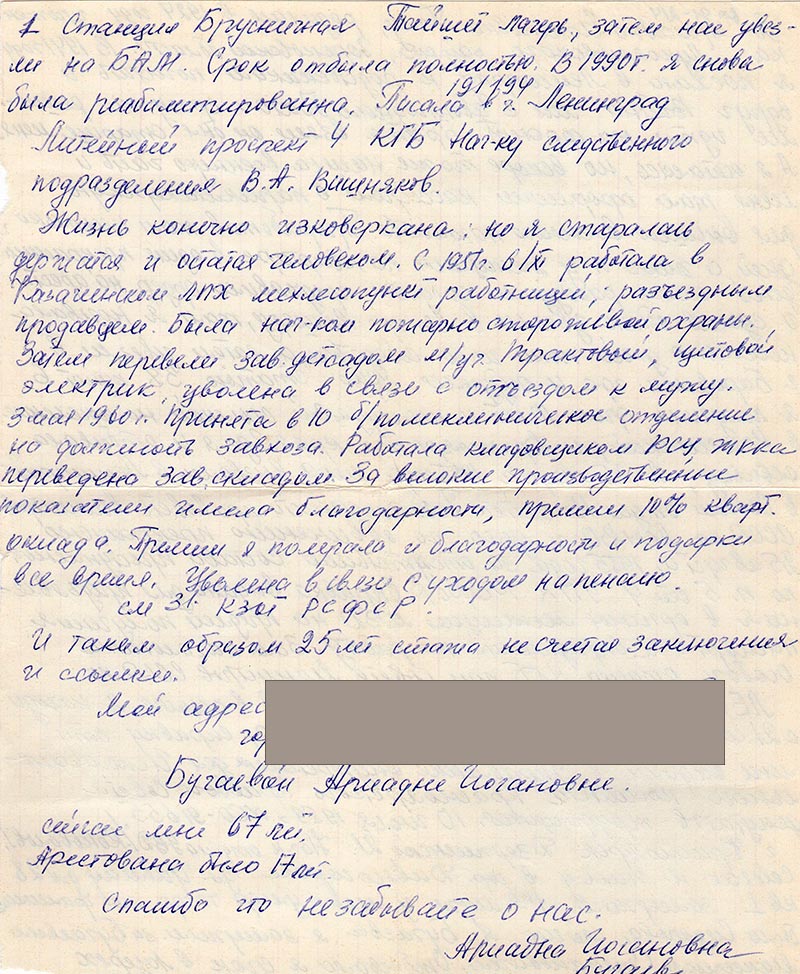 1 Станция Брусничная Тайшет лагерь, затем нас увез-
ли на БАМ. Срок отбыла полностью. В 1990г. я снова
была реабилитированна. Писала в г. Ленинград
191194
Литейный проспект 4 КГБ Нач-ку следственного
подразделения В.А. Вишняков.
Жизнь конечно изковеркана; но я старалась
держатся и остатся человеком. С 1951г. 6/XI работала в
Казачинском ЛПХ мехлесопункт работницей, разъездным
продавцем. Была нач-ком пожарно сторожевой охраны.
Затем перевели зав. детсадом м/уч. Трактовый, щитовой
электрик, уволена в связи с отъездом к мужу.
3 мая 1960г. Принята в 10 б/поликлиническое отделение
на должность завхоза. Работала кладовщиком РСУ ЖККа
переведена зав. складом. За високие производственные
показатели имела благодарности, премии 10% кварт.
оклада. Премии я получала и благодарности и подарки
все время. Уволена в связи с уходом на пенсию.
см 31 КЗОТ РСФСР
И таким образом 25 лет стажа не считая заключения
и ссылки.
Мой адрес
гор
Бугаевой Ариадне Иогановне.
сейчас мне 67 лет.
Арестована было 17 лет.
Спасибо что незабывайте о нас.
Ариадна Иогановна
Бугаев